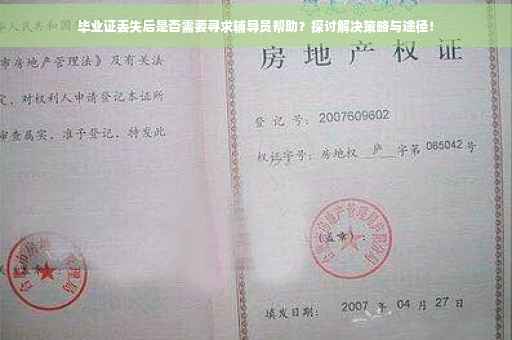 毕业证丢失后是否需要寻求辅导员帮助？探讨解决策略与途径！
华人民共和国
市房地产管理法》及有关
定，对权利人申请登记本证所
审查属实，准予登记，特发此
房地产权证
登记号：2007609602
权证字号：房地权 庐 字第 085042 号
（盖章）：
填发日期：2007 年 04 月 27 日